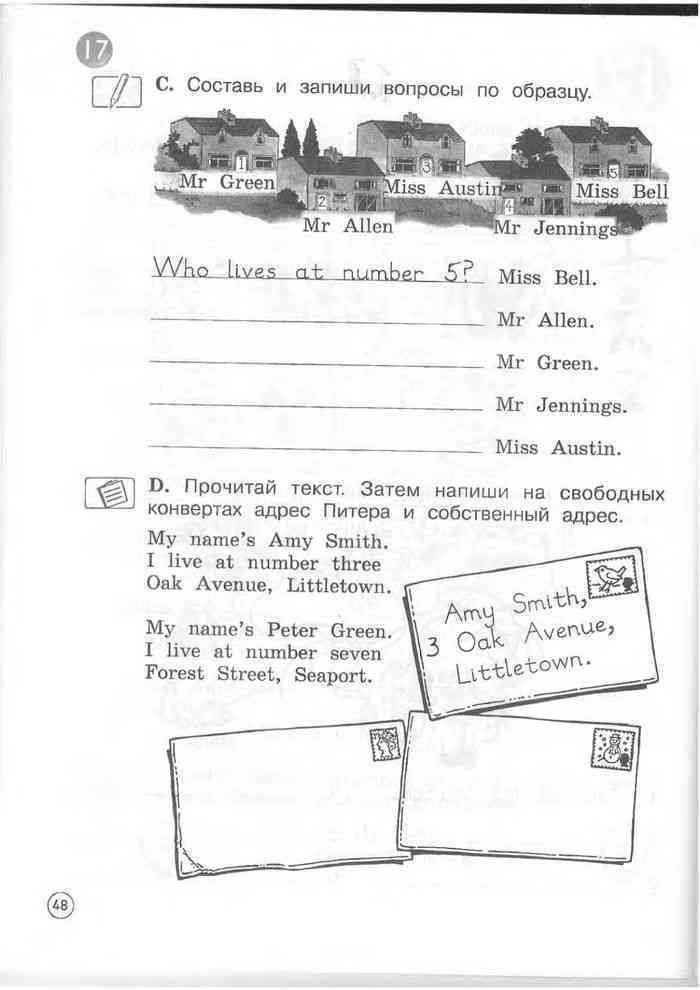 17
C. Составь и запиши вопросы по образцу.
1
3
5
Mr Green
Miss Austin
Miss Bell
2
4
Mr Allen
Mr Jennings
Who lives at number 5? Miss Bell.
Mr Allen.
Mr Green.
Mr Jennings.
Miss Austin.
D. Прочитай текст. Затем напиши на свободных
конвертах адрес Питера и собственный адрес.
My name's Amy Smith.
I live at number three
Oak Avenue, Littletown.
My name's Peter Green.
I live at number seven
Forest Street, Seaport.
Amy Smith,
3 Oak Avenue,
Littletown.
48